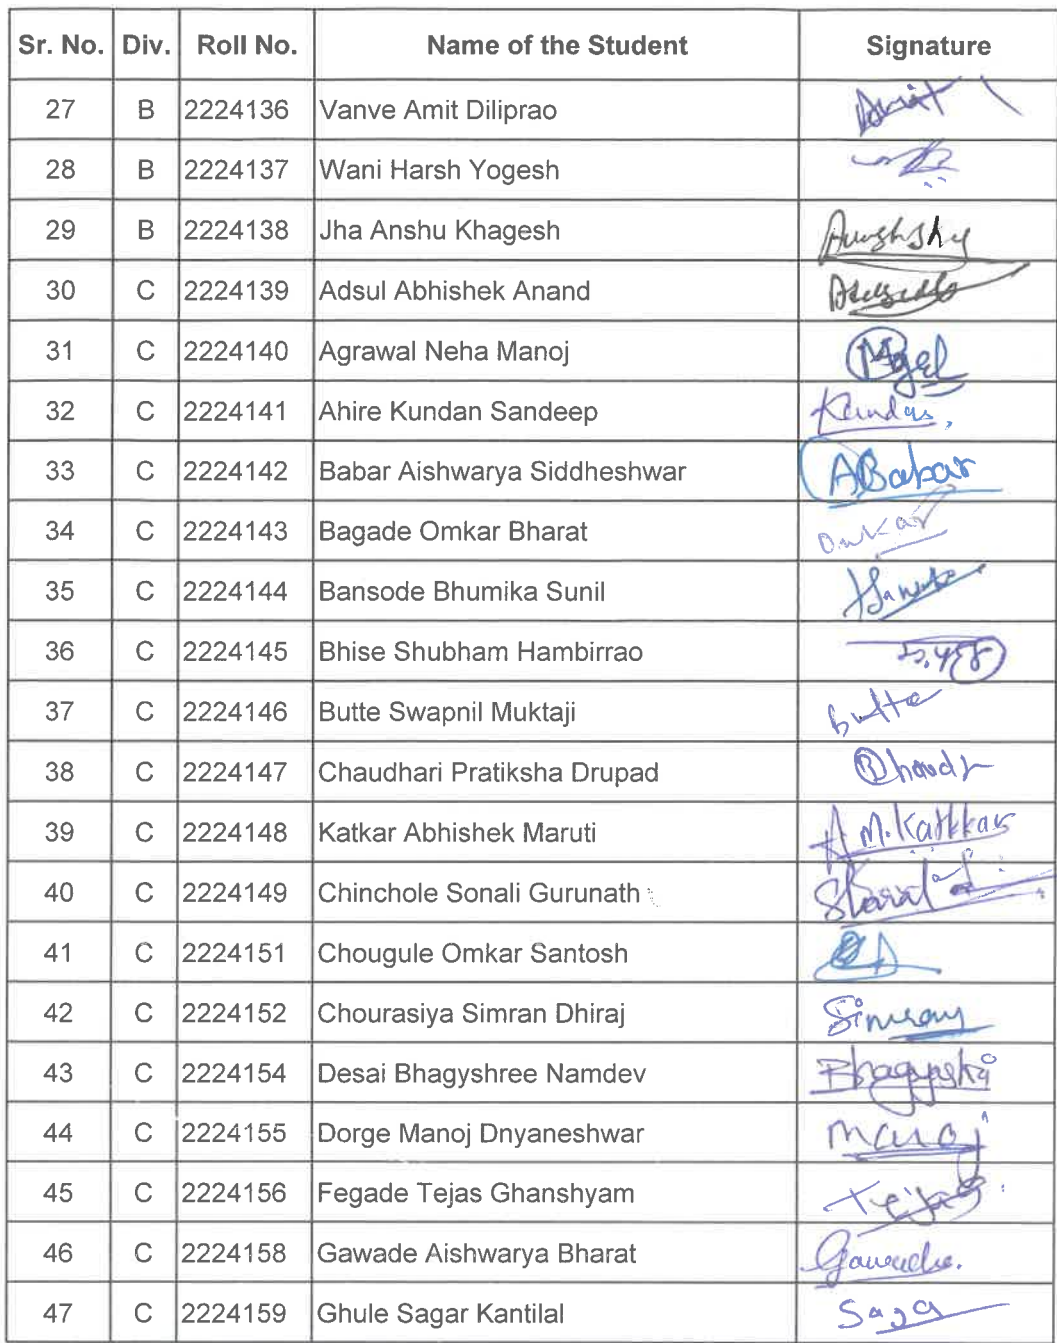 Sr. No. Div. Roll No. Name of the Student Signature
27 B 2224136 Vanve Amit Diliprao Amit
28 B 2224137 Wani Harsh Yogesh
29 B 2224138 Jha Anshu Khagesh
30 C 2224139 Adsul Abhishek Anand
31 C 2224140 Agrawal Neha Manoj
32 C 2224141 Ahire Kundan Sandeep
33 C 2224142 Babar Aishwarya Siddheshwar ABabar
34 C 2224143 Bagade Omkar Bharat Omkar
35 C 2224144 Bansode Bhumika Sunil
36 C 2224145 Bhise Shubham Hambirrao
37 C 2224146 Butte Swapnil Muktaji Butte
38 C 2224147 Chaudhari Pratiksha Drupad
39 C 2224148 Katkar Abhishek Maruti A M. Katkkar
40 C 2224149 Chinchole Sonali Gurunath
41 C 2224151 Chougule Omkar Santosh
42 C 2224152 Chourasiya Simran Dhiraj Simran
43 C 2224154 Desai Bhagyshree Namdev
44 C 2224155 Dorge Manoj Dnyaneshwar Manoj
45 C 2224156 Fegade Tejas Ghanshyam Tejas
46 C 2224158 Gawade Aishwarya Bharat
47 C 2224159 Ghule Sagar Kantilal